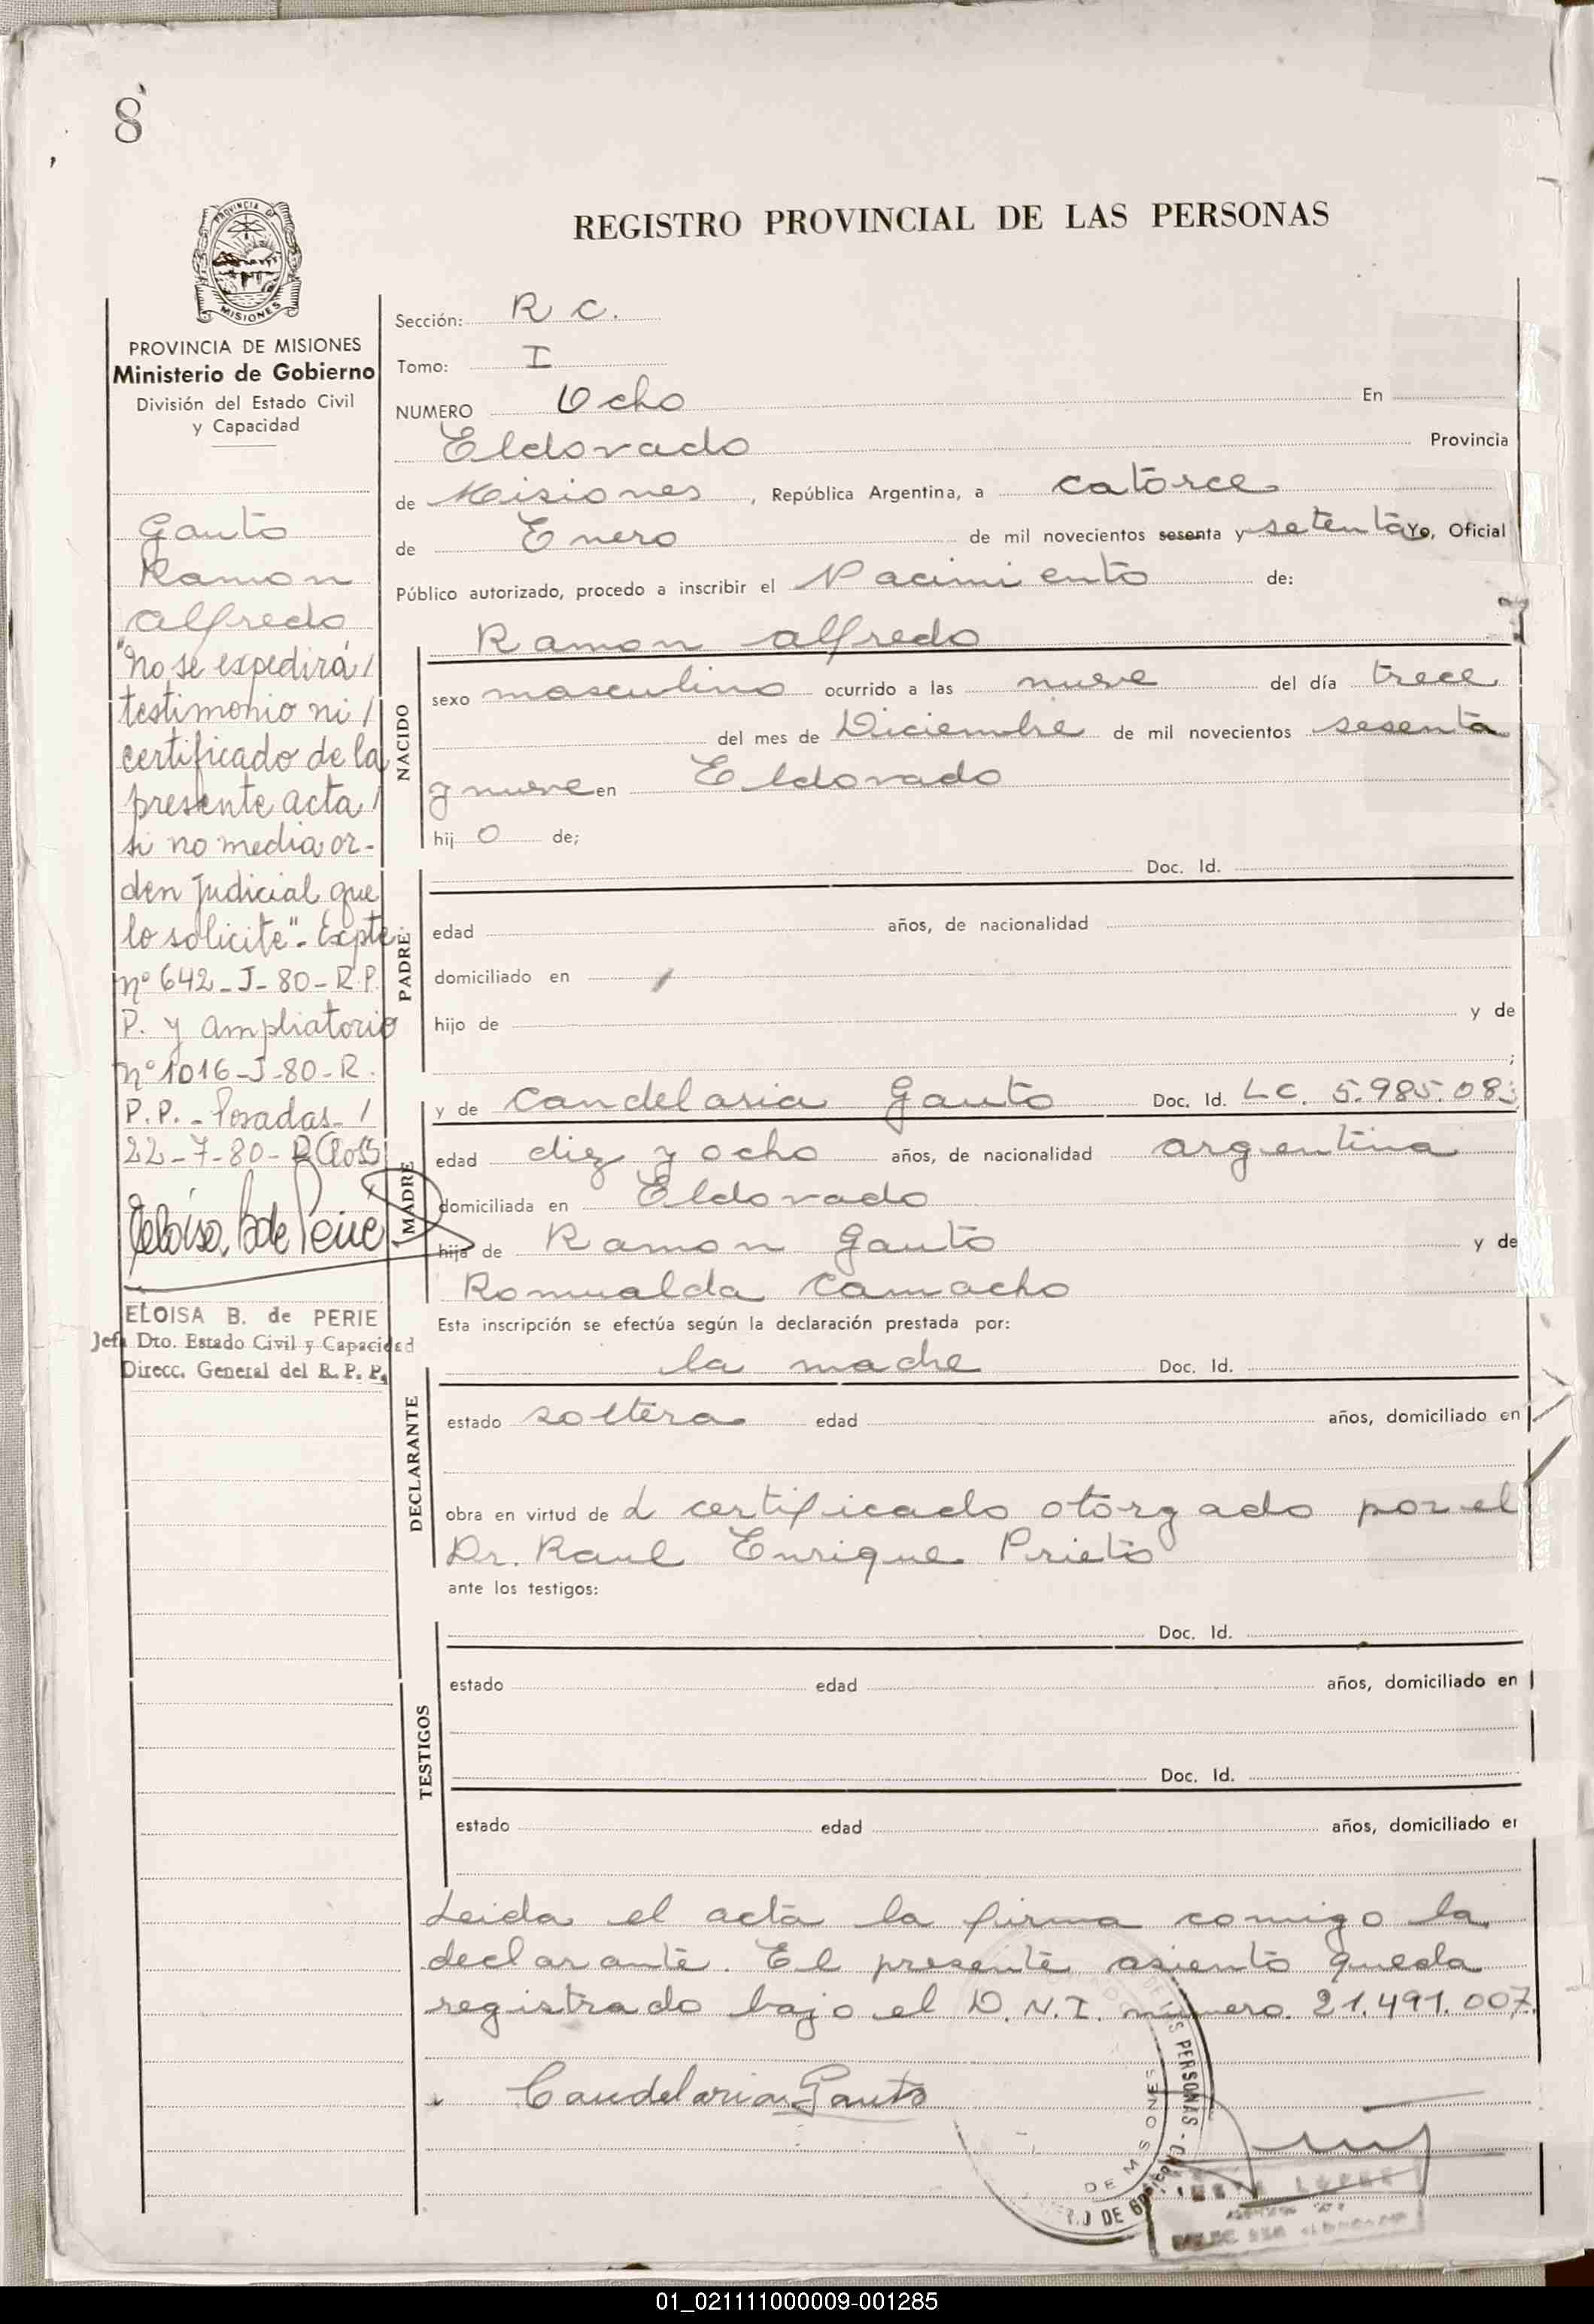 8
PROVINCIA DE
MISIONES
PROVINCIA DE MISIONES
Ministerio de Gobierno
División del Estado Civil
y Capacidad
Gauto
Ramon
Alfredo
"No se expedirá/
testimonio ni/
certificado de la
presente acta/
si no media or-
den Judicial que
lo solicite"- Expte.
nº 642-J-80-R.P.
P. y ampliatorio
nº 1016-J-80-R.
P.P.- Posadas-/
22-7-80-
ELOISA B. de PERIE
Jefa Dto. Estado Civil y Capacidad
Direcc. General del R. P. P.
REGISTRO PROVINCIAL DE LAS PERSONAS
Sección: R C.
Tomo: I
NUMERO Ocho En
Eldorado Provincia
de Misiones, República Argentina, a catorce
de Enero de mil novecientos sesenta y setenta Yo, Oficial
Público autorizado, procedo a inscribir el Nacimiento de:
NACIDO
Ramon Alfredo
sexo masculino ocurrido a las nueve del día trece
del mes de Diciembre de mil novecientos sesenta
y nueve en Eldorado
hijo de;
PADRE
Doc. Id.
edad años, de nacionalidad
domiciliado en
hijo de y de
;
MADRE
y de Candelaria Gauto Doc. Id. LC. 5.985.083
edad diez y ocho años, de nacionalidad argentina
domiciliada en Eldorado
hija de Ramon Gauto y de
Romualda Camacho
Esta inscripción se efectúa según la declaración prestada por:
DECLARANTE
la madre Doc. Id.
estado soltera edad años, domiciliado en
obra en virtud de l certificado otorgado por el
Dr. Raul Enrique Prieto
ante los testigos:
TESTIGOS
Doc. Id.
estado edad años, domiciliado en
Doc. Id.
estado edad años, domiciliado en
Leida el acta la firma comigo la
declarante. El presente asiento queda
registrado bajo el D.N.I. número 21.491.007.
Candelaria Gauto
PERSONAS
DE MISIONES
01_021111000009-001285